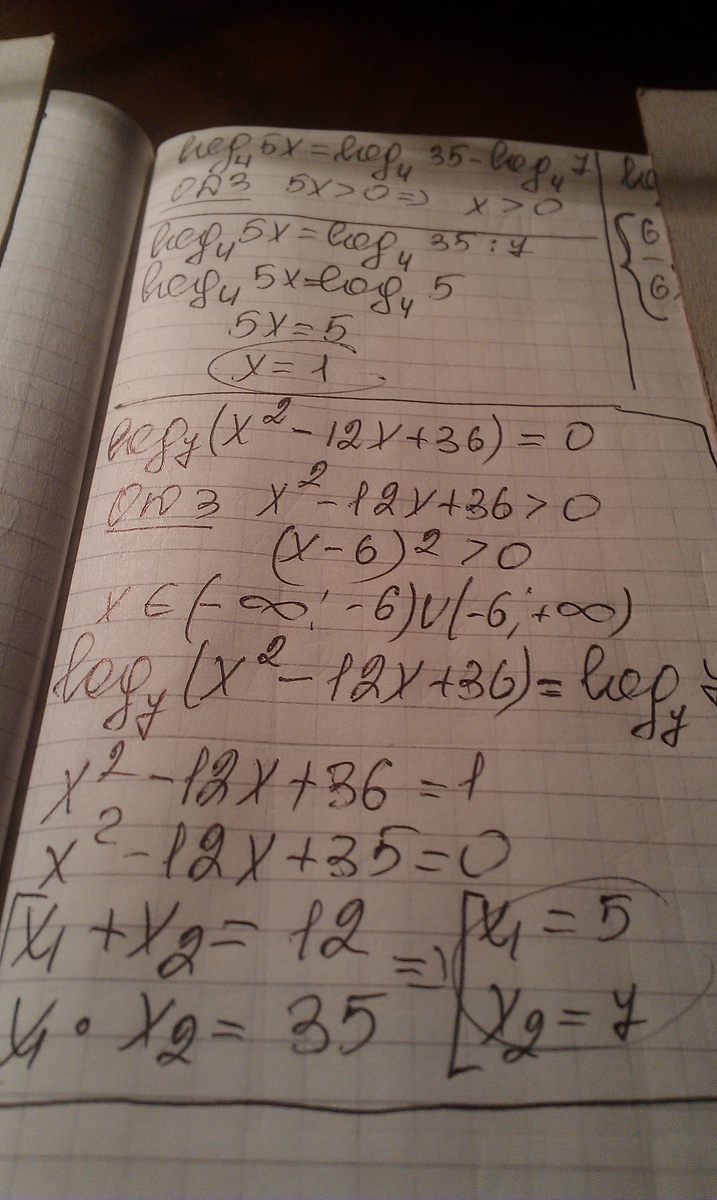 log₄ 5x = log₄ 35 - log₄ 7
ОДЗ 5x > 0 ⇒ x > 0
log₄ 5x = log₄ 35 : 7
log₄ 5x = log₄ 5
5x = 5
x = 1
log₇(x² - 12x + 36) = 0
ОДЗ x² - 12x + 36 > 0
(x - 6)² > 0
x ∈ (-∞; -6) ∪ (-6; +∞)
log₇(x² - 12x + 36) = log₇
x² - 12x + 36 = 1
x² - 12x + 35 = 0
[x₁ + x₂ = 12
x₁ · x₂ = 35
⇒
[x₁ = 5
x₂ = 7
{6
6